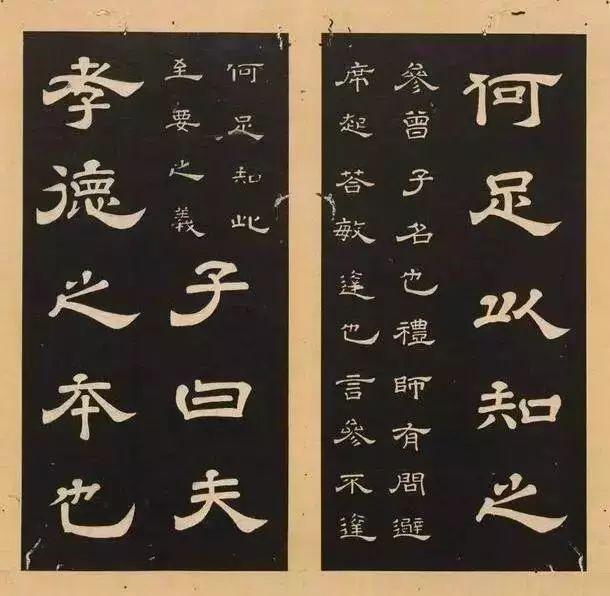 何足以知之
參曾子名也禮師有問避
席起荅敏逹也言參不逹
何足知此
至要之義
子曰夫
孝德之本也